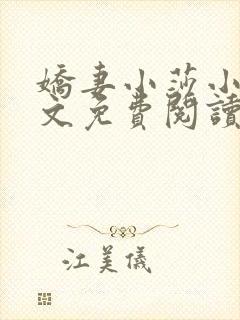 嬌妻小莎小
文免費閱讀
江美儀